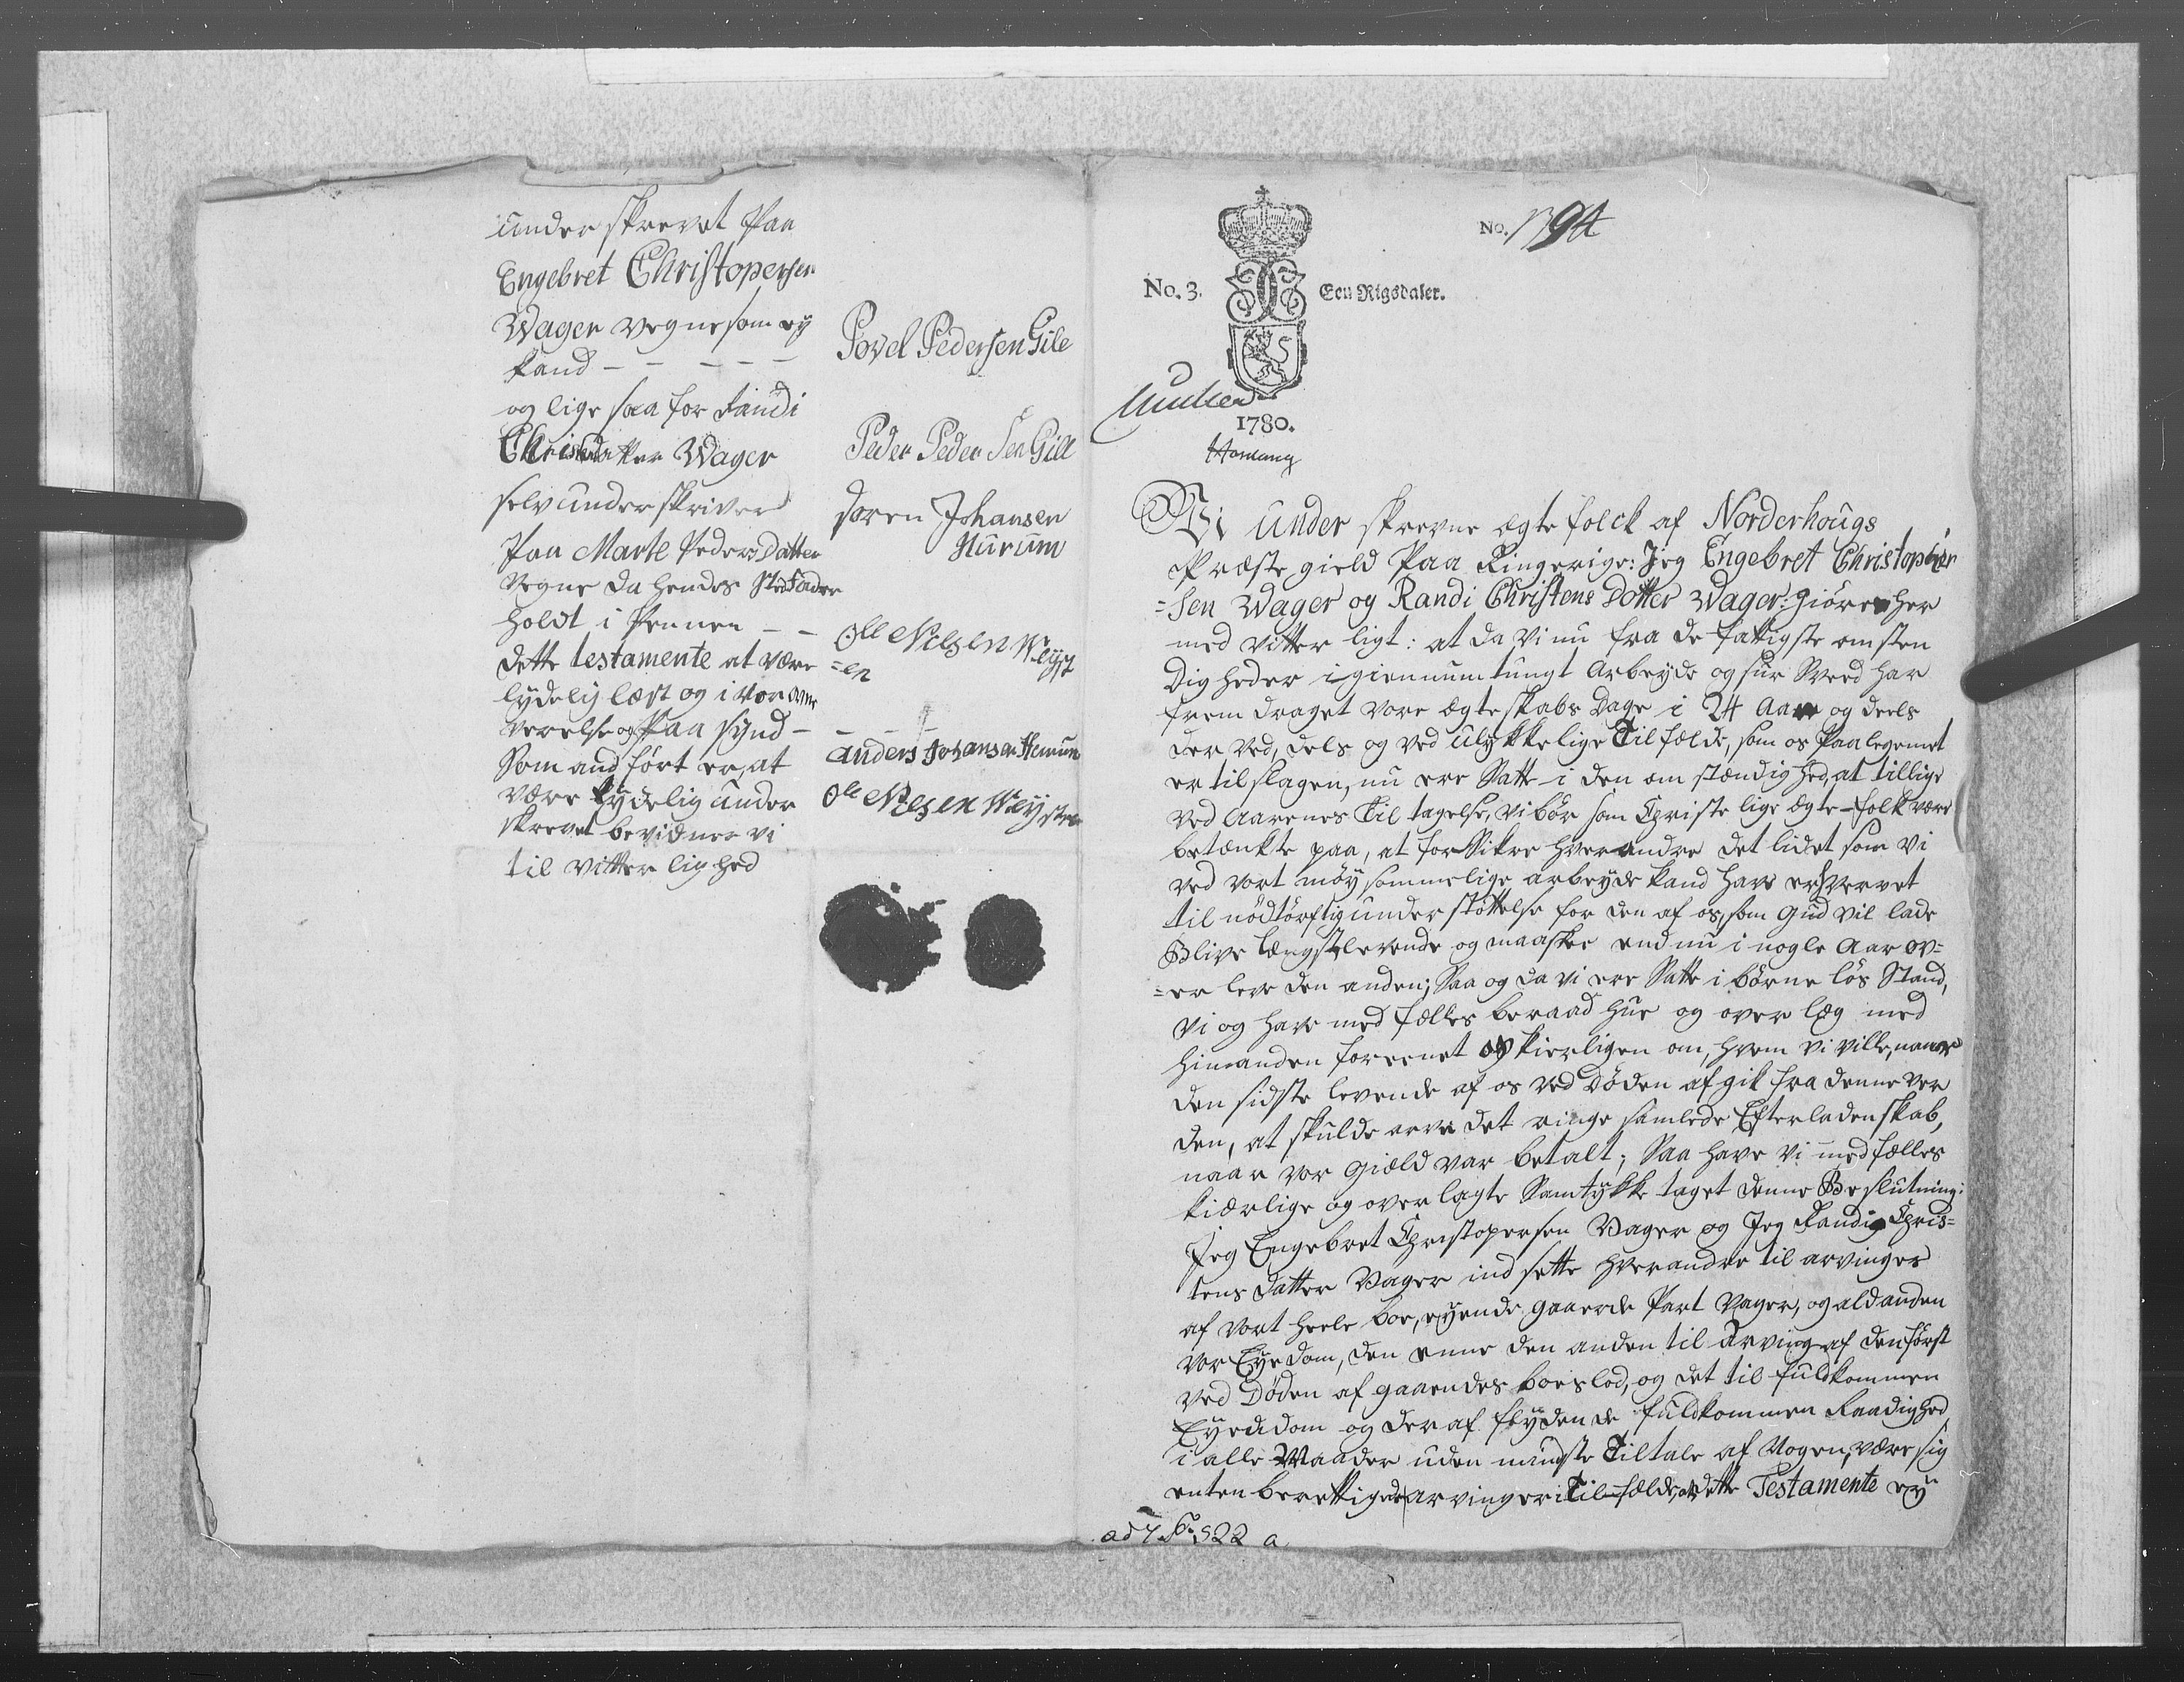 under skrevet Paa
Engebret Christopersen
Wager vegne som ey
kand - - - - -
og lige saa for Randi
Christens datter Wager
selv under skriver
Paa Marte Peders Datter
vegne da hendes Stedfader
holdt i Pennen - -
dette testamente at være
lydelig læst og i vor over
værelse og Paa Synd -
Som and ført er, at
være tydelig under
skrevet bevidner vi
til vitterlighed
Povel Pedersen Gile
Peder Peder Sen Gill
Søren Johansen
Hurum
Olle Nilsen Weyst
=en
Anders Johansen Hemun
Ole Nilsen Weysten
No. 1394
No. 3. Een Rigsdaler.
1780.
Vi under skrevne ægte folck af Norderhougs
Præste gield Paa Ringerige: Jeg Engebret Christopher
=Sen Wager og Randi Christens Dotter Wager: giører her
med vitter ligt: at da vi nu fra de fattigste omsten
digheder igiennum tungt arbeyde og sur Sveed har
frem draget vore ægteskabs Dage i 24 Aar og deels
derved, dels og ved ulykkelige Tilfælde, som os Paa legemet
er tilslagen, nu ere Satte i den omstændighed, at tillige
ved Aarenes Tiltagelse, vi bør som Christelige ægte-folk være
betænkte paa, at for Sikre hverandre det lidet som vi
ved vort møysommelige arbeyde kand have erhvervet
til nødtørftig understøttelse for den af os, som Gud vil lade
Blive længstlevende og maaskee endnu i nogle Aar ov=
=er leve den anden; Saa og da vi ere Satte i børne løs Stand,
vi og have med fælles beraad hue og over læg med
hinanden foreenet os kierligen om, hvem vi ville, naar
den sidste levende af os ved Døden afgik fra denne ver
den, at skulde arve det ringe samlede Efterladenskab,
naar vor Giæld var betalt; Saa have vi med fælles
kiærlige og overlagte Samtykke taget denne Beslutning:
Jeg Engebret Christopersen Vager og Jeg Randi Chris=
tens datter Vager indsette hverandre til arvinger
af vort heele boe, eyende gaarde Part Vager, og ald anden
vor Eyedom, den enne den anden til Arving af den først
ved Døden afgaaendes boeslod, og det til fuldkommen
Eyendom og der af flydende fuldkommen Raadighed
i alle Maader uden mindste Tiltale af Nogen, være sig
enten berettigede arvinger i Tilfælde, at dette Testamente ey
522 a